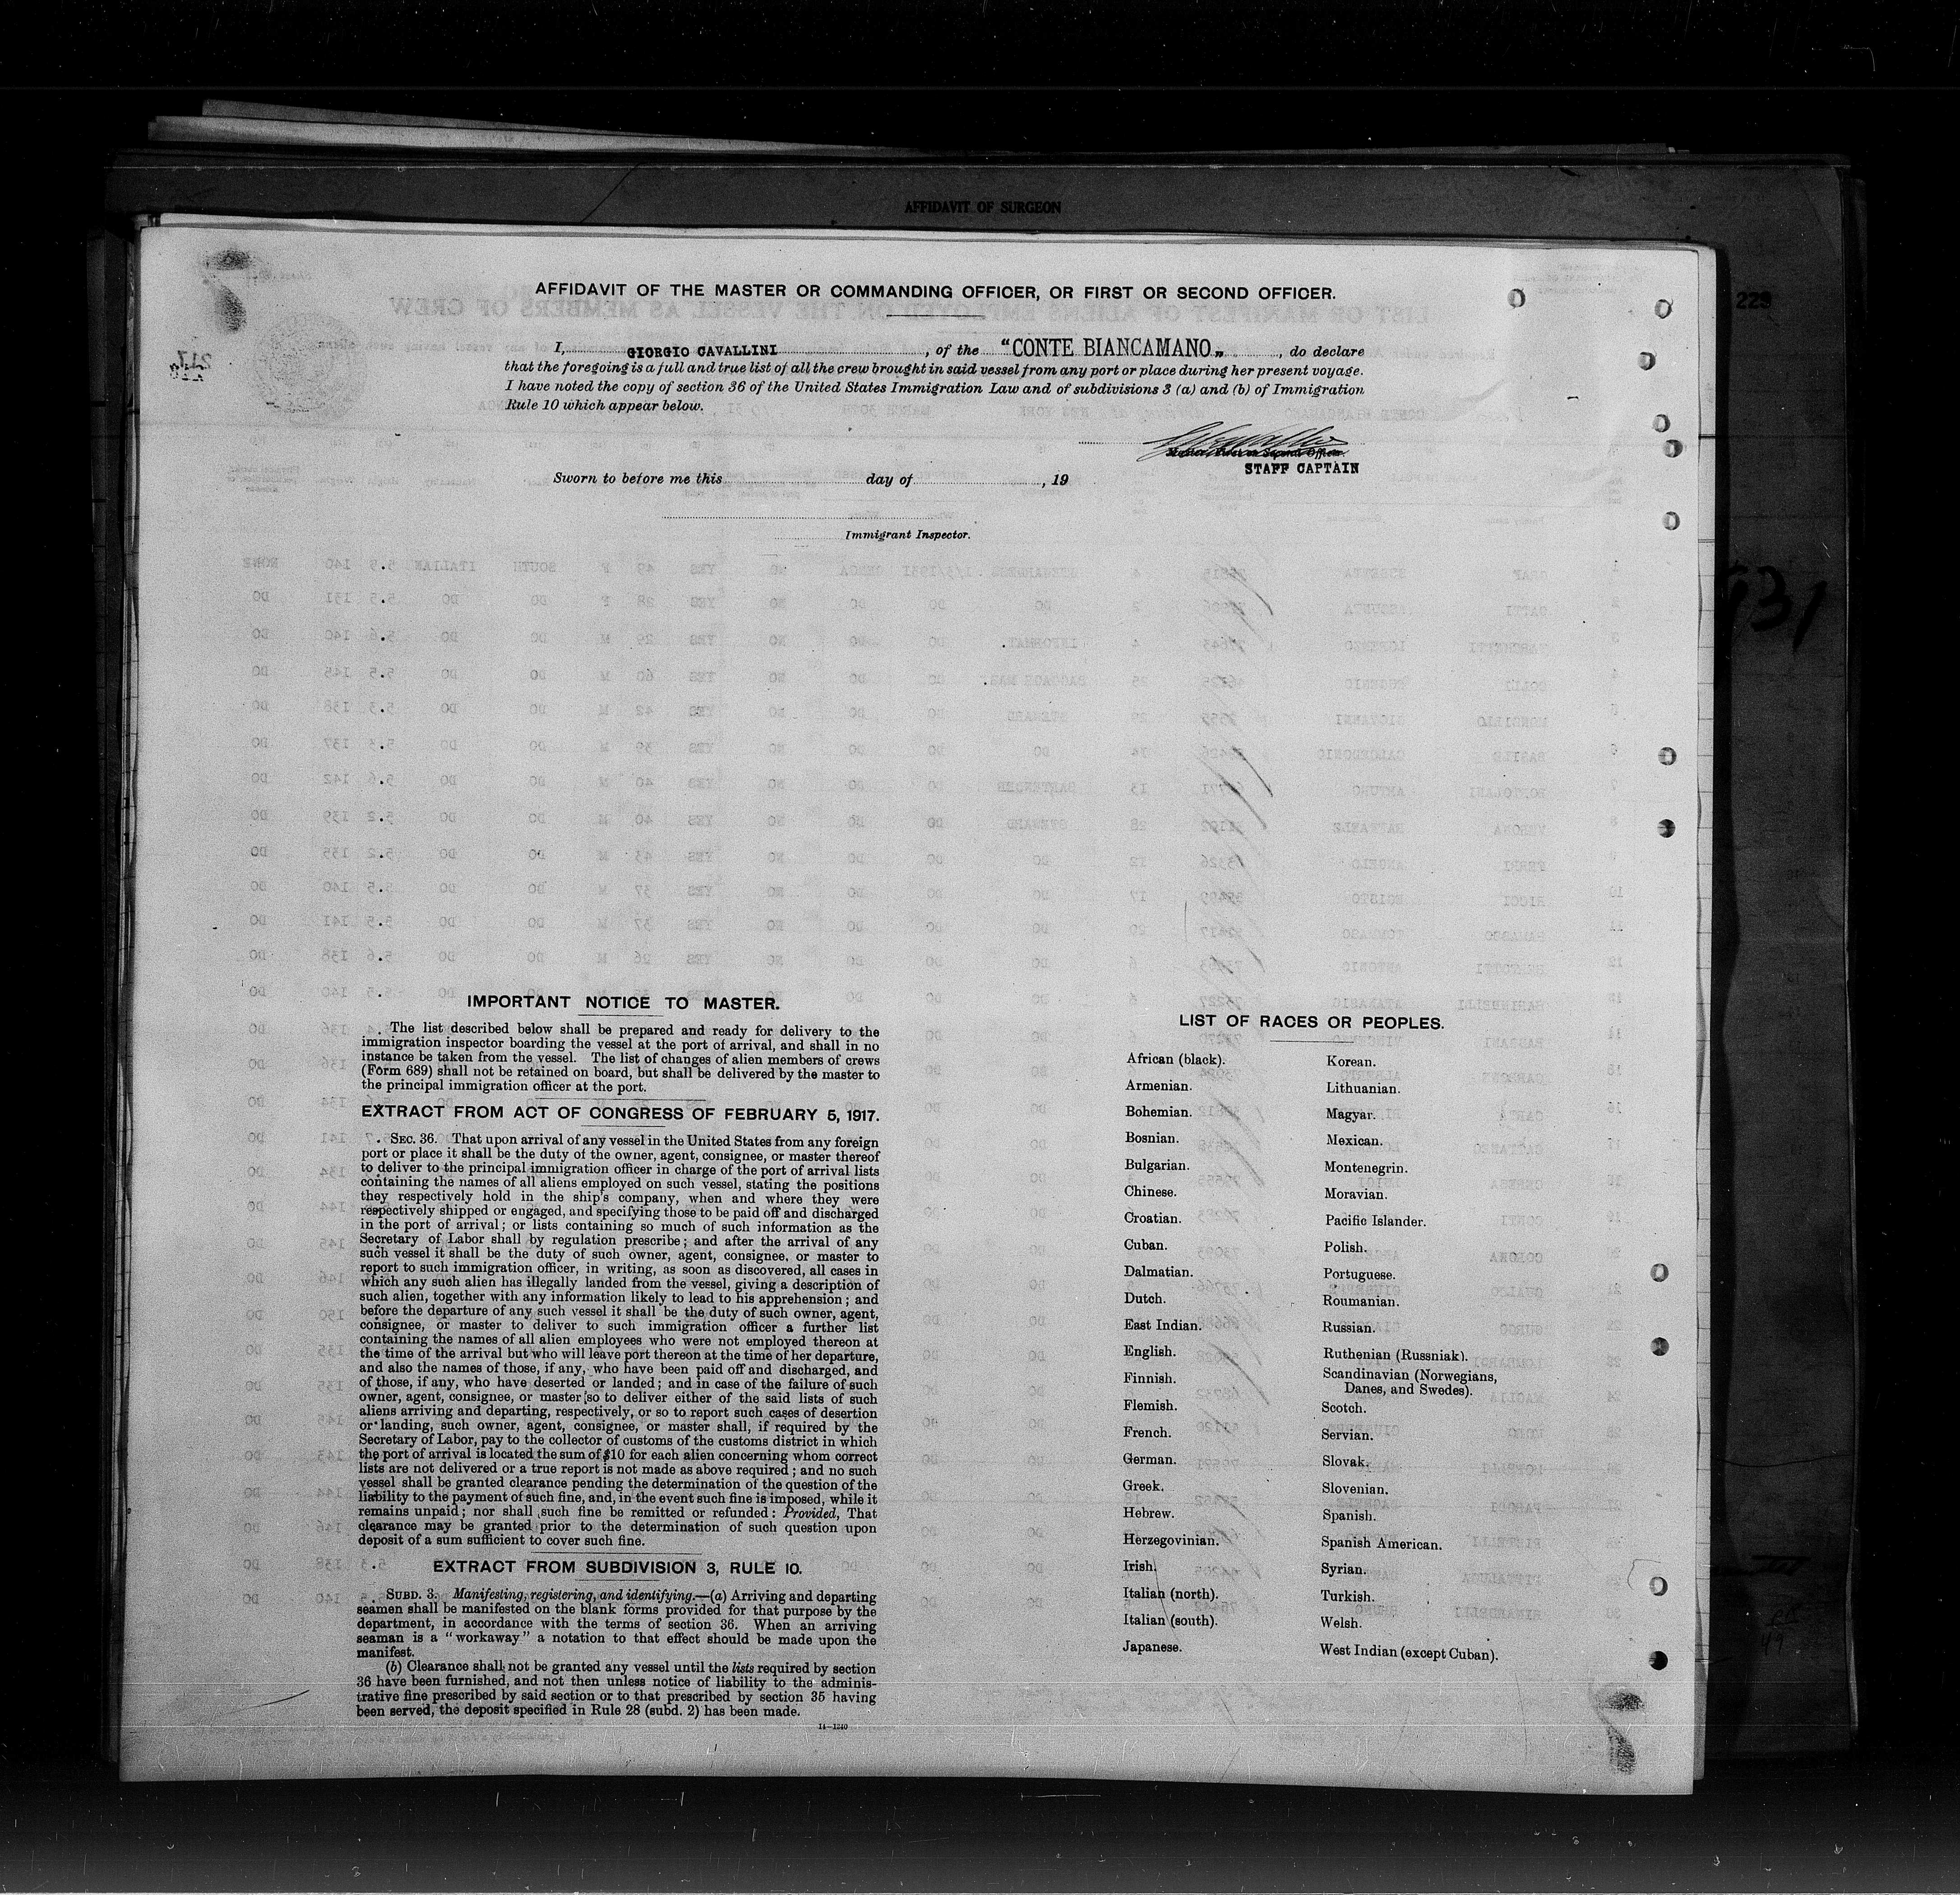 AFFIDAVIT OF SURGEON
AFFIDAVIT OF THE MASTER OR COMMANDING OFFICER, OR FIRST OR SECOND OFFICER.
I, GIORGIO CAVALLINI, of the "CONTE BIANCAMANO", do declare
that the foregoing is a full and true list of all the crew brought in said vessel from any port or place during her present voyage.
I have noted the copy of section 36 of the United States Immigration Law and of subdivisions 3 (a) and (b) of Immigration
Rule 10 which appear below.
STAFF CAPTAIN
Sworn to before me this day of , 19
Immigrant Inspector.
229
IMPORTANT NOTICE TO MASTER.
The list described below shall be prepared and ready for delivery to the
immigration inspector boarding the vessel at the port of arrival, and shall in no
instance be taken from the vessel. The list of changes of alien members of crews
(Form 689) shall not be retained on board, but shall be delivered by the master to
the principal immigration officer at the port.
EXTRACT FROM ACT OF CONGRESS OF FEBRUARY 5, 1917.
SEC. 36. That upon arrival of any vessel in the United States from any foreign
port or place it shall be the duty of the owner, agent, consignee, or master thereof
to deliver to the principal immigration officer in charge of the port of arrival lists
containing the names of all aliens employed on such vessel, stating the positions
they respectively hold in the ship's company, when and where they were
respectively shipped or engaged, and specifying those to be paid off and discharged
in the port of arrival; or lists containing so much of such information as the
Secretary of Labor shall by regulation prescribe; and after the arrival of any
such vessel it shall be the duty of such owner, agent, consignee, or master to
report to such immigration officer, in writing, as soon as discovered, all cases in
which any such alien has illegally landed from the vessel, giving a description of
such alien, together with any information likely to lead to his apprehension; and
before the departure of any such vessel it shall be the duty of such owner, agent,
consignee, or master to deliver to such immigration officer a further list
containing the names of all alien employees who were not employed thereon at
the time of the arrival but who will leave port thereon at the time of her departure,
and also the names of those, if any, who have been paid off and discharged, and
of those, if any, who have deserted or landed; and in case of the failure of such
owner, agent, consignee, or master so to deliver either of the said lists of such
aliens arriving and departing, respectively, or so to report such cases of desertion
or landing, such owner, agent, consignee, or master shall, if required by the
Secretary of Labor, pay to the collector of customs of the customs district in which
the port of arrival is located the sum of $10 for each alien concerning whom correct
lists are not delivered or a true report is not made as above required; and no such
vessel shall be granted clearance pending the determination of the question of the
liability to the payment of such fine, and, in the event such fine is imposed, while it
remains unpaid; nor shall such fine be remitted or refunded: Provided, That
clearance may be granted prior to the determination of such question upon
deposit of a sum sufficient to cover such fine.
EXTRACT FROM SUBDIVISION 3, RULE 10.
SUBD. 3. Manifesting, registering, and identifying.—(a) Arriving and departing
seamen shall be manifested on the blank forms provided for that purpose by the
department, in accordance with the terms of section 36. When an arriving
seaman is a "workaway" a notation to that effect should be made upon the
manifest.
(b) Clearance shall not be granted any vessel until the lists required by section
36 have been furnished, and not then unless notice of liability to the adminis-
trative fine prescribed by said section or to that prescribed by section 35 having
been served, the deposit specified in Rule 28 (subd. 2) has been made.
14—1240
LIST OF RACES OR PEOPLES.
African (black).
Armenian.
Bohemian.
Bosnian.
Bulgarian.
Chinese.
Croatian.
Cuban.
Dalmatian.
Dutch.
East Indian.
English.
Finnish.
Flemish.
French.
German.
Greek.
Hebrew.
Herzegovinian.
Irish.
Italian (north).
Italian (south).
Japanese.
Korean.
Lithuanian.
Magyar.
Mexican.
Montenegrin.
Moravian.
Pacific Islander.
Polish.
Portuguese.
Roumanian.
Russian.
Ruthenian (Russniak).
Scandinavian (Norwegians,
Danes, and Swedes).
Scotch.
Servian.
Slovak.
Slovenian.
Spanish.
Spanish American.
Syrian.
Turkish.
Welsh.
West Indian (except Cuban).